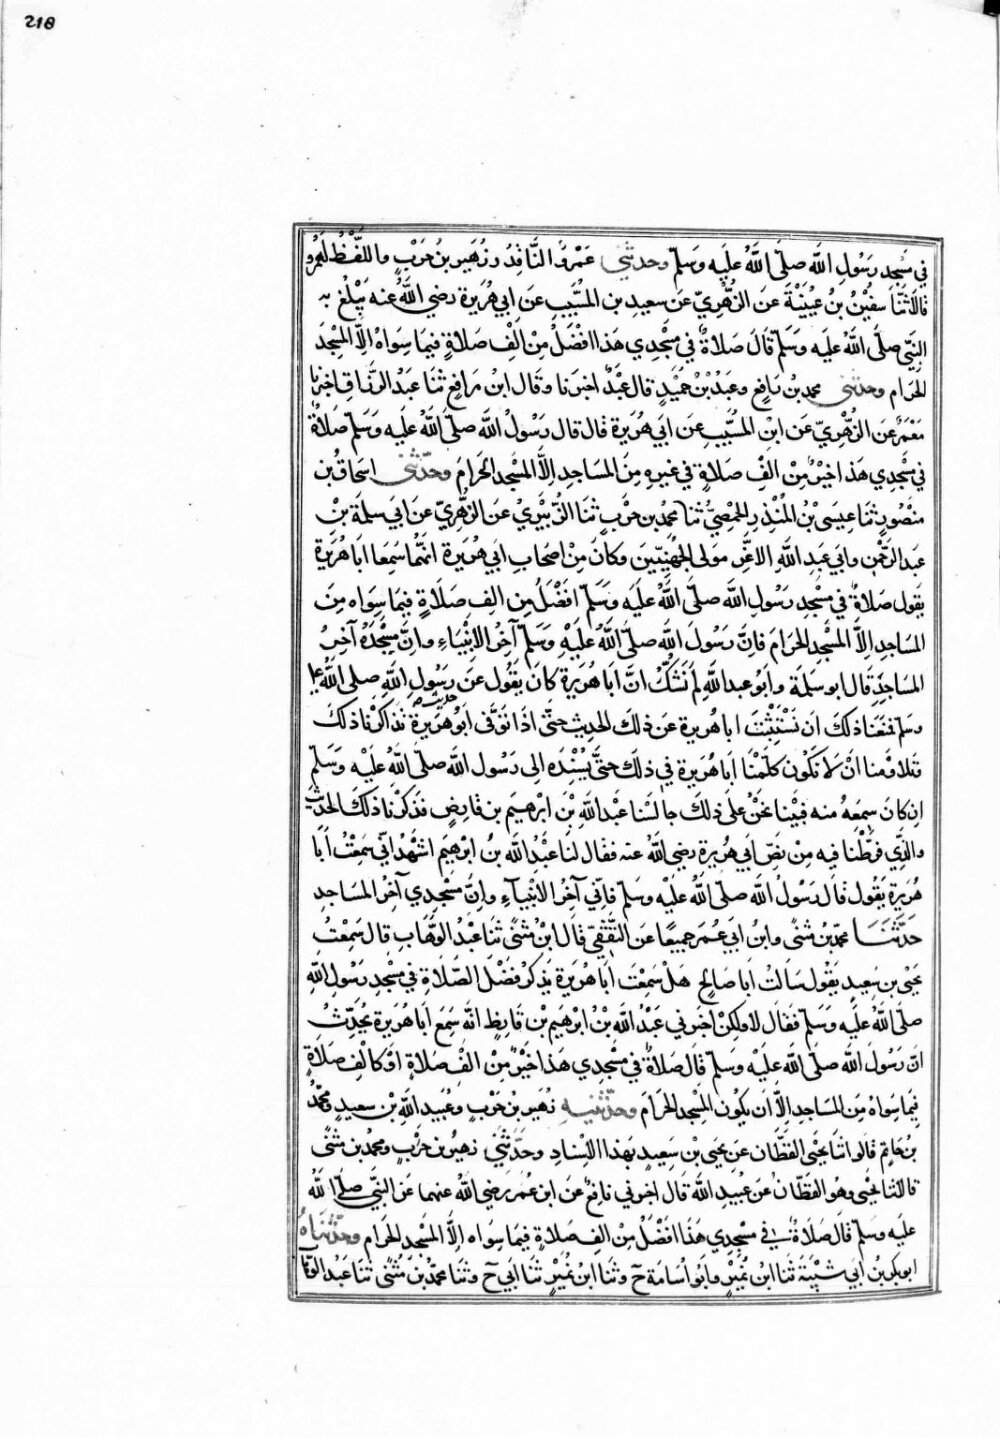 218
في مسجد رسول الله صلى الله عليه وسلم وحدثني عمرو الناقد وزهير بن حرب واللفظ لعمرو
قالا ثنا سفين بن عيينة عن الزهري عن سعيد بن المسيب عن ابي هريرة رضي الله عنه يبلغ به
النبي صلى الله عليه وسلم قال صلاة في مسجدي هذا افضل من الف صلاة فيما سواه الا المسجد
الحرام وحدثني محمد بن رافع وعبد بن حميد قال عبد اخبرنا وقال ابن رافع ثنا عبد الرزاق اخبرنا
معمر عن الزهري عن ابن المسيب عن ابي هريرة قال قال رسول الله صلى الله عليه وسلم صلاة
في مسجدي هذا خير من الف صلاة في غيره من المساجد الا المسجد الحرام وحدثني اسحاق بن
منصور ثنا عيسى بن المنذر الحمصي ثنا محمد بن حرب ثنا الزبيري عن الزهري عن ابي سلمة بن
عبد الرحمن وابي عبد الله الاغر مولى الجهنيين وكان من اصحاب ابي هريرة انهما سمعا ابا هريرة
يقول صلاة في مسجد رسول الله صلى الله عليه وسلم افضل من الف صلاة فيما سواه من
المساجد الا المسجد الحرام فان رسول الله صلى الله عليه وسلم آخر الانبياء وان مسجده آخر
المساجد قال ابو سلمة وابو عبد الله لم نشك ان ابا هريرة كان يقول عن حديث رسول الله صلى الله عليه
وسلم فمنعنا ذلك ان نستثبت ابا هريرة عن ذلك الحديث حتى اذا توفى ابو هريرة تذاكرنا ذلك
وتلاومنا ان لا نكون كلمنا ابا هريرة في ذلك حتى يسنده الى رسول الله صلى الله عليه وسلم
ان كان سمعه منه فبينا نحن على ذلك جالسنا عبد الله بن ابرهيم بن قارض فذكرنا ذلك الحديث
والذي فرطنا فيه من نص ابي هريرة رضي الله عنه فقال لنا عبد الله بن ابرهيم اشهد اني سمعت ابا
هريرة يقول قال رسول الله صلى الله عليه وسلم فاني آخر الانبياء وان مسجدي آخر المساجد
حدثنا محمد بن مثنى وابن ابي عمر جميعا عن الثقفي قال ابن مثنى ثنا عبد الوهاب قال سمعت
يحيى بن سعيد يقول سالت ابا صالح هل سمعت ابا هريرة يذكر فضل الصلاة في مسجد رسول الله
صلى الله عليه وسلم فقال لا ولكن اخبرني عبد الله بن ابرهيم بن قارظ انه سمع ابا هريرة يحدث
ان رسول الله صلى الله عليه وسلم قال صلاة في مسجدي هذا خير من الف صلاة او كالف صلاة
فيما سواه من المساجد الا ان يكون المسجد الحرام وحدثنيه زهير بن حرب وعبيد الله بن سعيد ومحمد
بن حاتم قالوا ثنا يحيى القطان عن يحيى بن سعيد بهذا الاسناد وحدثني زهير بن حرب ومحمد بن مثنى
قالا ثنا يحيى وهو القطان عن عبيد الله قال اخبرني نافع عن ابن عمر رضي الله عنهما عن النبي صلى الله
عليه وسلم قال صلاة في مسجدي هذا افضل من الف صلاة فيما سواه الا المسجد الحرام وحدثناه
ابو بكر بن ابي شيبة ثنا ابن نمير وابو اسامة ح وثنا ابن نمير ثنا ابي ح وثنا محمد بن مثنى ثنا عبد الوهاب